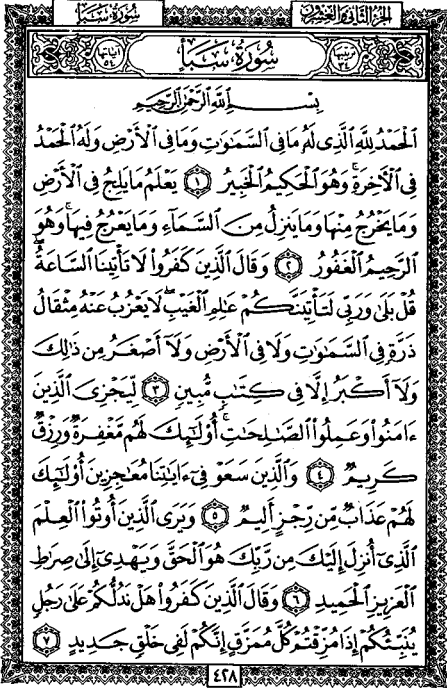 الجزء الثاني والعشرون
سورة سبأ
ترتيبها ٣٤
سُورَةُ سَبَإٍ
آياتها ٥٤
بِسْمِ اللَّهِ الرَّحْمَٰنِ الرَّحِيمِ
الْحَمْدُ لِلَّهِ الَّذِي لَهُ مَا فِي السَّمَٰوَٰتِ وَمَا فِي الْأَرْضِ وَلَهُ الْحَمْدُ
فِي الْآخِرَةِ ۚ وَهُوَ الْحَكِيمُ الْخَبِيرُ ١ يَعْلَمُ مَا يَلِجُ فِي الْأَرْضِ
وَمَا يَخْرُجُ مِنْهَا وَمَا يَنزِلُ مِنَ السَّمَآءِ وَمَا يَعْرُجُ فِيهَا ۚ وَهُوَ
الرَّحِيمُ الْغَفُورُ ٢ وَقَالَ الَّذِينَ كَفَرُوا۟ لَا تَأْتِينَا السَّاعَةُ ۖ
قُلْ بَلَىٰ وَرَبِّي لَتَأْتِيَنَّكُمْ عَٰلِمِ الْغَيْبِ ۖ لَا يَعْزُبُ عَنْهُ مِثْقَالُ
ذَرَّةٍ فِي السَّمَٰوَٰتِ وَلَا فِي الْأَرْضِ وَلَآ أَصْغَرُ مِن ذَٰلِكَ
وَلَآ أَكْبَرُ إِلَّا فِي كِتَٰبٍ مُّبِينٍ ٣ لِّيَجْزِيَ الَّذِينَ
ءَامَنُوا۟ وَعَمِلُوا۟ الصَّٰلِحَٰتِ ۚ أُو۟لَٰٓئِكَ لَهُم مَّغْفِرَةٌ وَرِزْقٌ
كَرِيمٌ ٤ وَالَّذِينَ سَعَوْ فِيٓ ءَايَٰتِنَا مُعَٰجِزِينَ أُو۟لَٰٓئِكَ
لَهُمْ عَذَابٌ مِّن رِّجْزٍ أَلِيمٌ ٥ وَيَرَى الَّذِينَ أُوتُوا۟ الْعِلْمَ
الَّذِيٓ أُنزِلَ إِلَيْكَ مِن رَّبِّكَ هُوَ الْحَقَّ وَيَهْدِيٓ إِلَىٰ صِرَٰطِ
الْعَزِيزِ الْحَمِيدِ ٦ وَقَالَ الَّذِينَ كَفَرُوا۟ هَلْ نَدُلُّكُمْ عَلَىٰ رَجُلٍ
يُنَبِّئُكُمْ إِذَا مُزِّقْتُمْ كُلَّ مُمَزَّقٍ إِنَّكُمْ لَفِي خَلْقٍ جَدِيدٍ ٧
٤٢٨